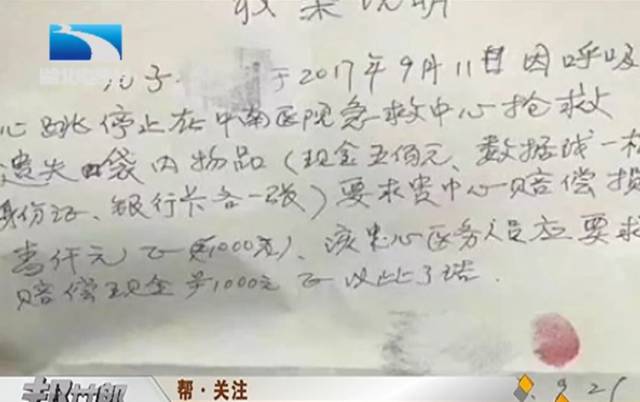 收条说明
于2017年9月11日因呼吸
心跳停止在中南医院急救中心抢救
遗失口袋内物品（现金五佰元、数据线一根
身份证、银行卡各一张）要求贵中心赔偿损
壹仟元正（¥1000元）、该中心医务人员应要求
赔偿现金¥1000元正以此了结.
帮·关注
9.2